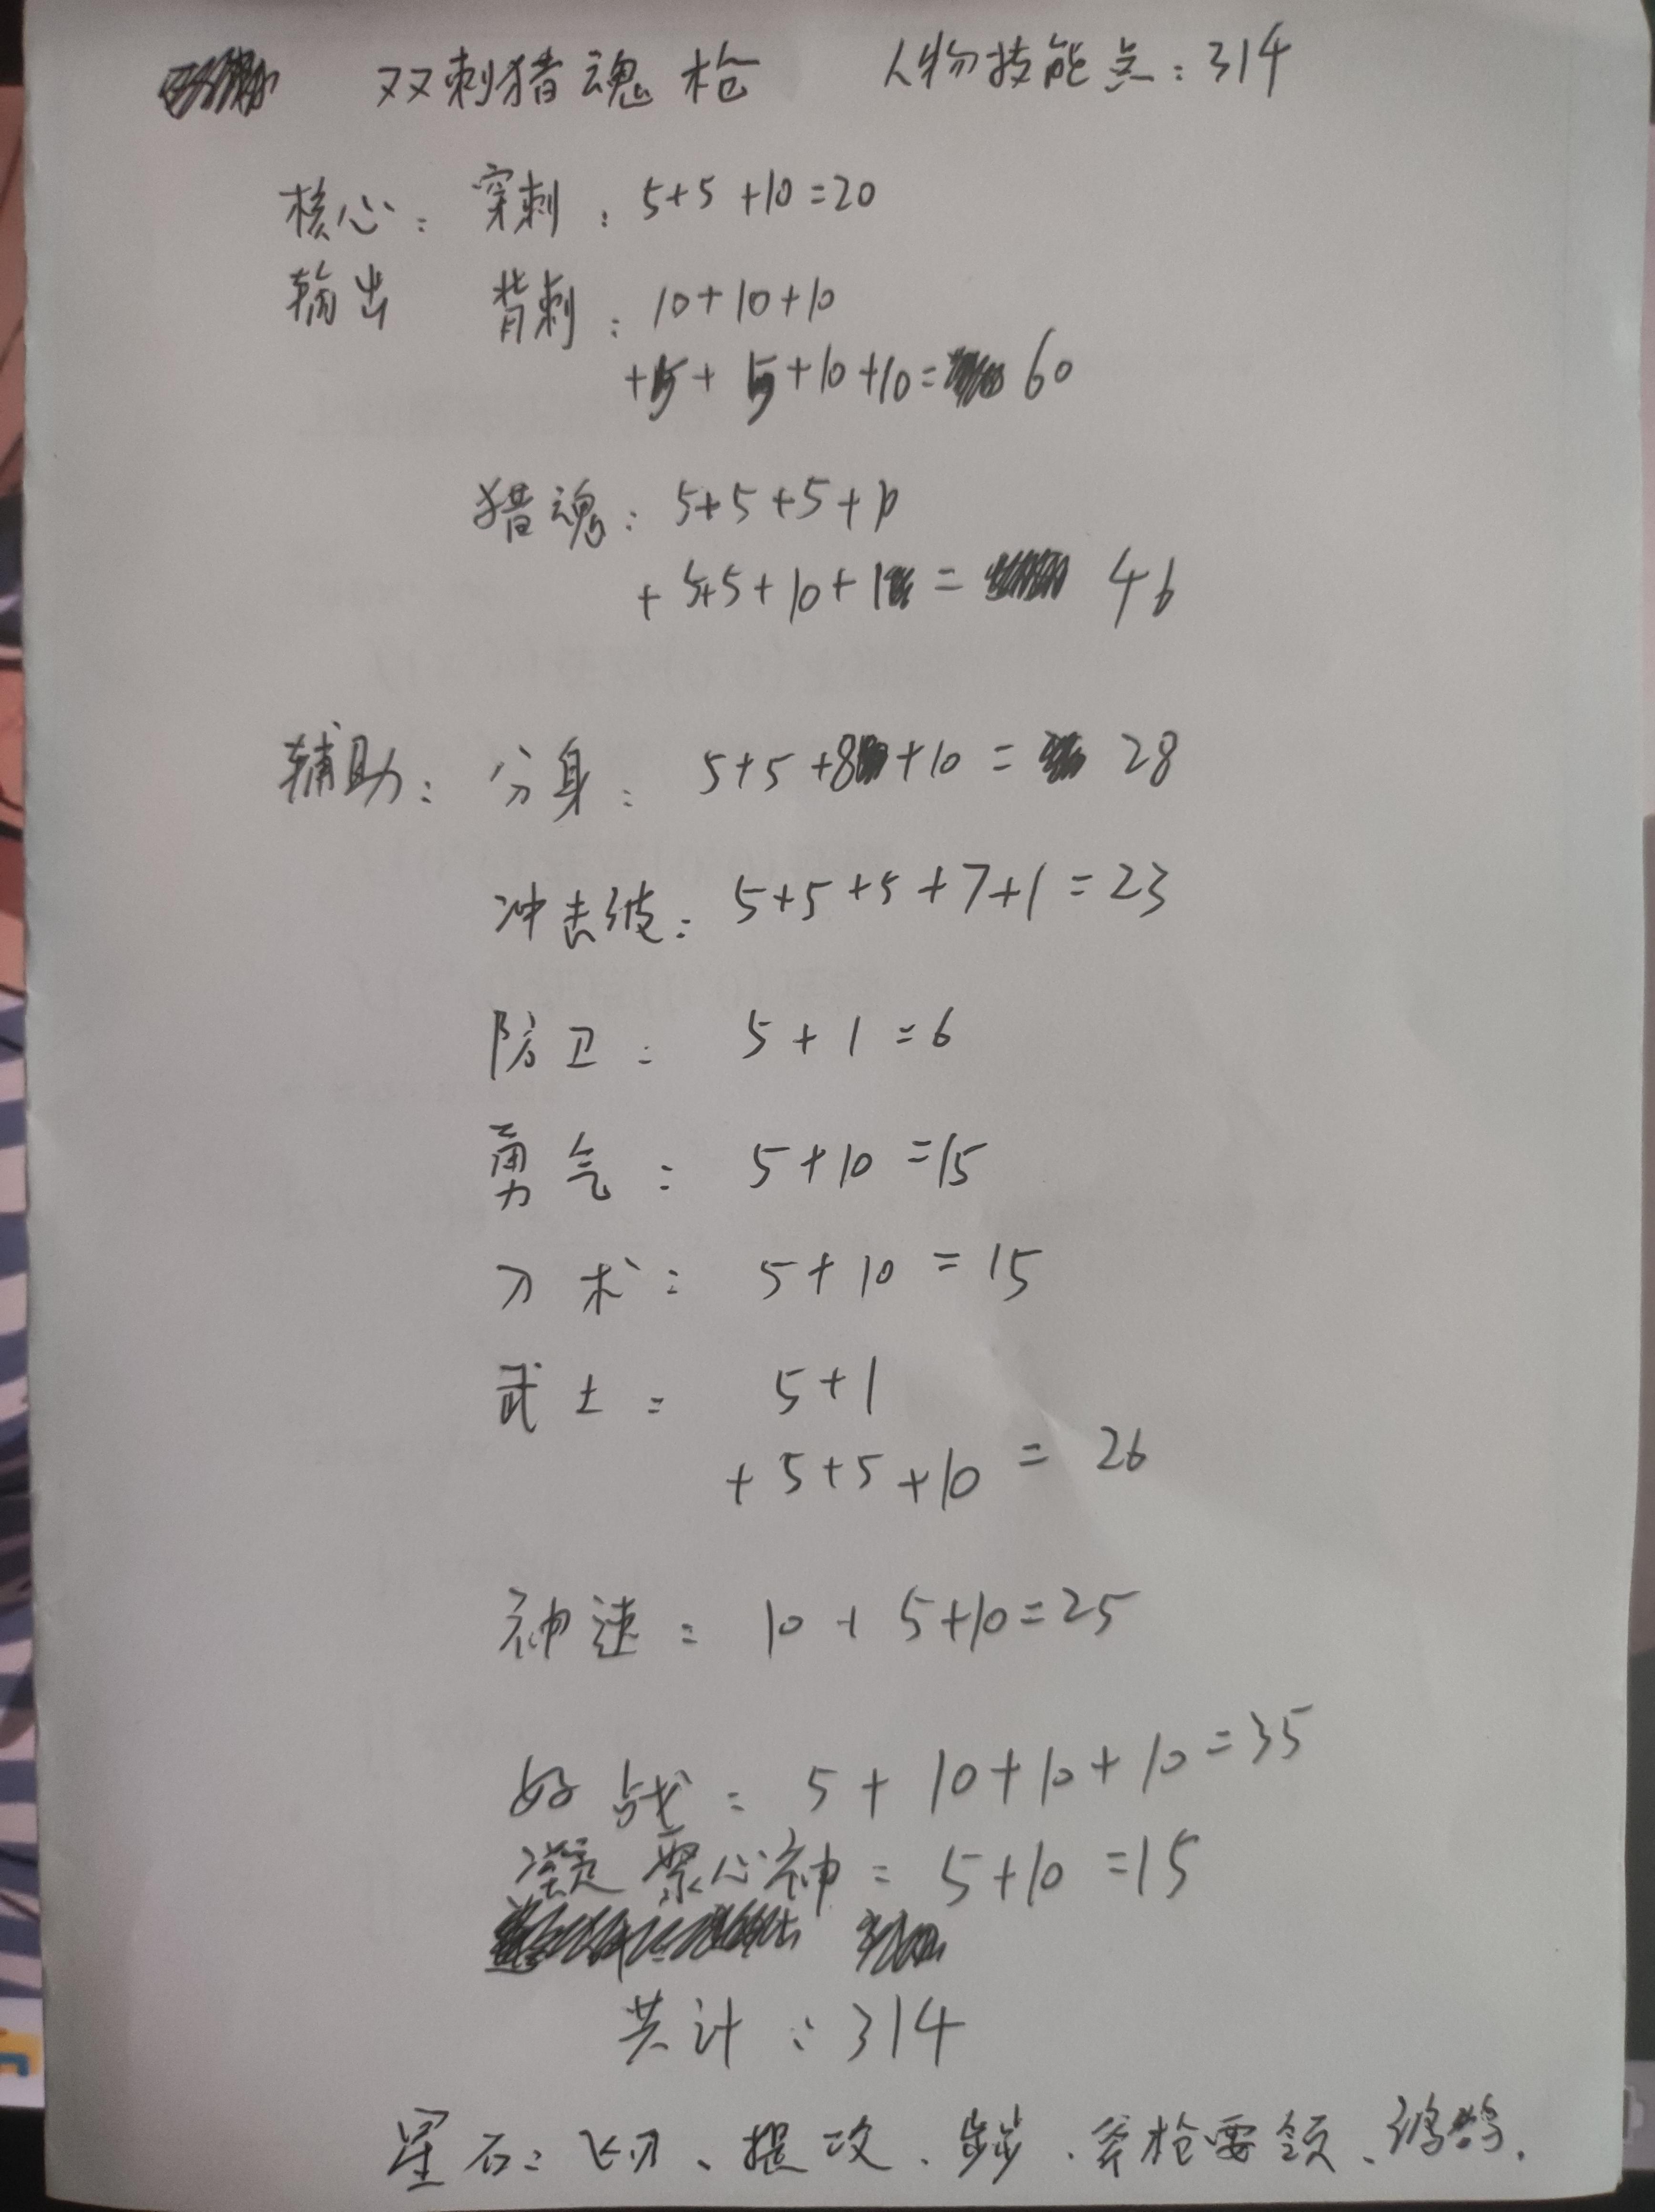 双刺猎魂枪 人物技能点：314
核心： 穿刺： 5+5+10=20
输出 背刺： 10+10+10
+5+5+10+10= 60
猎魂： 5+5+5+10
+5+5+10+1= 46
辅助： 分身： 5+5+8+10= 28
冲击波： 5+5+5+7+1=23
防卫： 5+1=6
勇气： 5+10=15
刀术： 5+10=15
武士： 5+1
+5+5+10= 26
神速： 10+5+10=25
好战： 5+10+10+10=35
凝聚心神： 5+10=15
共计：314
星石：飞刃、提攻、步步、斧枪要领、